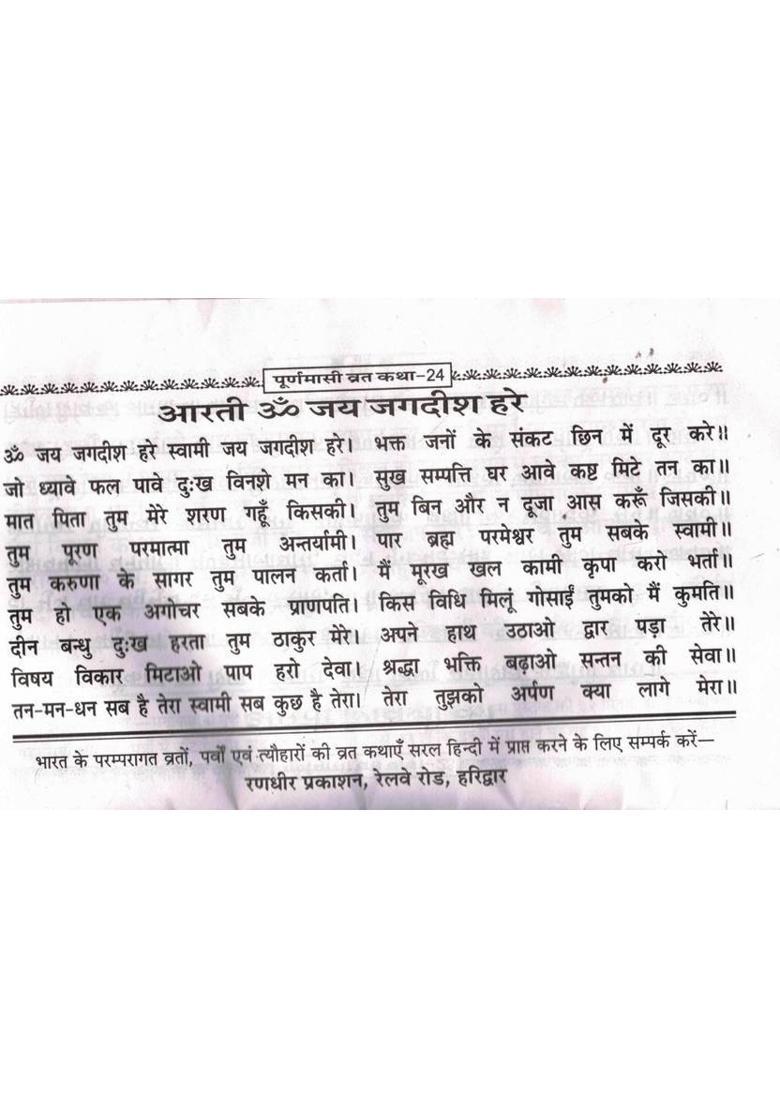 पूर्णमासी व्रत कथा-24
आरती ॐ जय जगदीश हरे
ॐ जय जगदीश हरे स्वामी जय जगदीश हरे। भक्त जनों के संकट छिन में दूर करे॥
जो ध्यावे फल पावे दुःख विनशे मन का। सुख सम्पत्ति घर आवे कष्ट मिटे तन का॥
मात पिता तुम मेरे शरण गहूँ किसकी। तुम बिन और न दूजा आस करूँ जिसकी॥
तुम पूरण परमात्मा तुम अन्तर्यामी। पार ब्रह्म परमेश्वर तुम सबके स्वामी॥
तुम करुणा के सागर तुम पालन कर्ता। मैं मूरख खल कामी कृपा करो भर्ता॥
तुम हो एक अगोचर सबके प्राणपति। किस विधि मिलूं गोसाईं तुमको मैं कुमति॥
दीन बन्धु दुःख हरता तुम ठाकुर मेरे। अपने हाथ उठाओ द्वार पड़ा तेरे॥
विषय विकार मिटाओ पाप हरो देवा। श्रद्धा भक्ति बढ़ाओ सन्तन की सेवा॥
तन-मन-धन सब है तेरा स्वामी सब कुछ है तेरा। तेरा तुझको अर्पण क्या लागे मेरा॥
भारत के परम्परागत व्रतों, पर्वों एवं त्यौहारों की व्रत कथाएँ सरल हिन्दी में प्राप्त करने के लिए सम्पर्क करें—
रणधीर प्रकाशन, रेलवे रोड, हरिद्वार